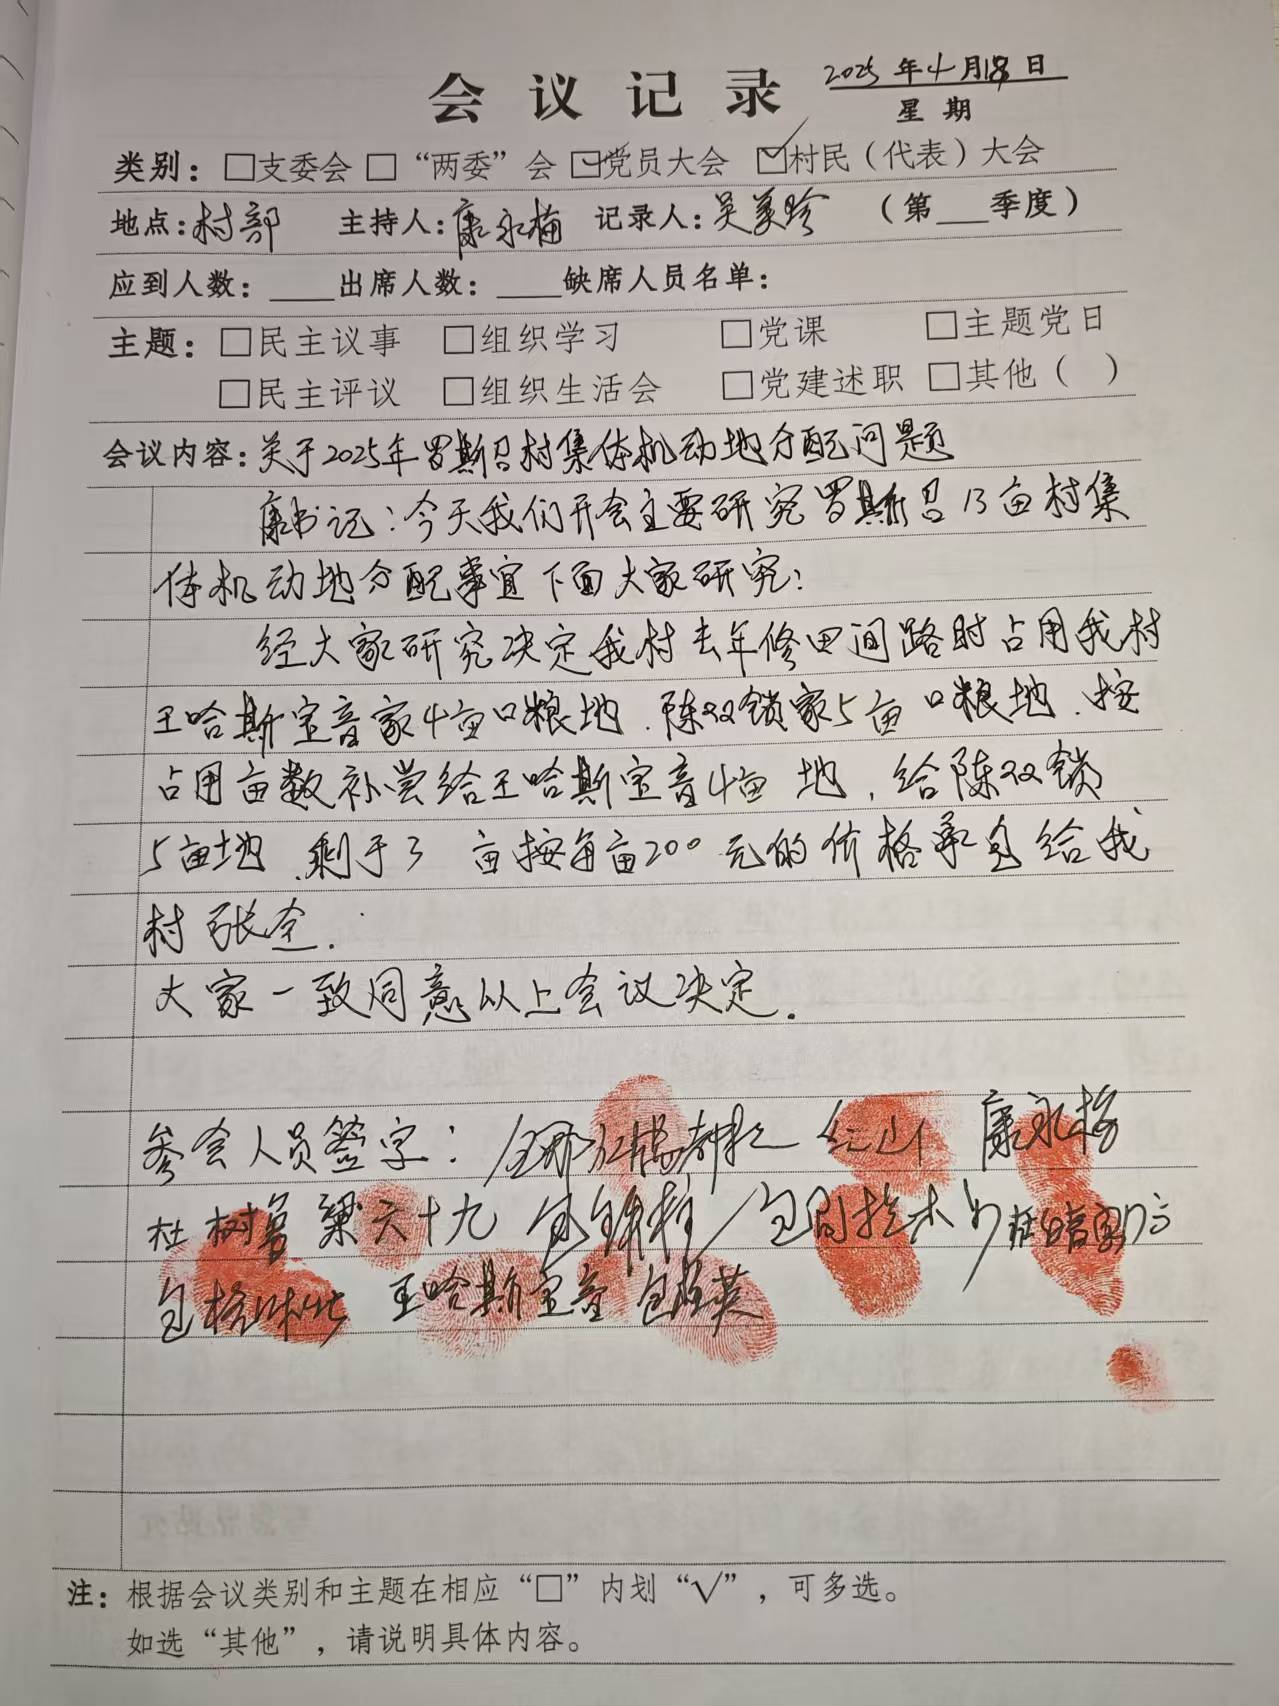 会议记录
2025年4月18日
星期
类别：□支委会 □“两委”会 ☑党员大会 ☑村民（代表）大会
地点：村部 主持人：康永梅 记录人：吴美玲 （第___季度）
应到人数：____出席人数：____缺席人员名单：
主题：□民主议事 □组织学习 □党课 □主题党日
□民主评议 □组织生活会 □党建述职 □其他（ ）
会议内容：关于2025年罗斯召村集体机动地分配问题
康书记：今天我们开会主要研究罗斯召13亩村集
体机动地分配事宜下面大家研究：
经大家研究决定我村去年修田间路时占用我村
王哈斯宝音家4亩口粮地．陈双锁家5亩口粮地．按
占用亩数补尝给王哈斯宝音4亩 地，给陈双锁
5亩地．剩于3 亩按每亩200元的价格承包给我
村张全．
大家一致同意以上会议决定．
参会人员签字： 康永梅
杜树 梁六十九 包
包格 王哈斯宝音 包 英
注：根据会议类别和主题在相应“□”内划“√”，可多选。
如选“其他”，请说明具体内容。